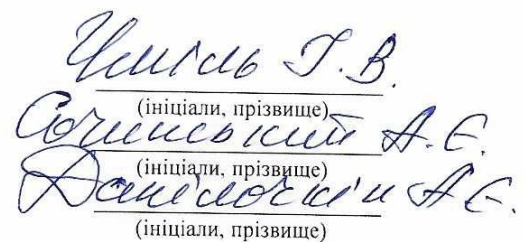 Чміль Г. В.
(ініціали, прізвище)
Сочинський А. Є.
(ініціали, прізвище)
Данілочкін А Є.
(ініціали, прізвище)